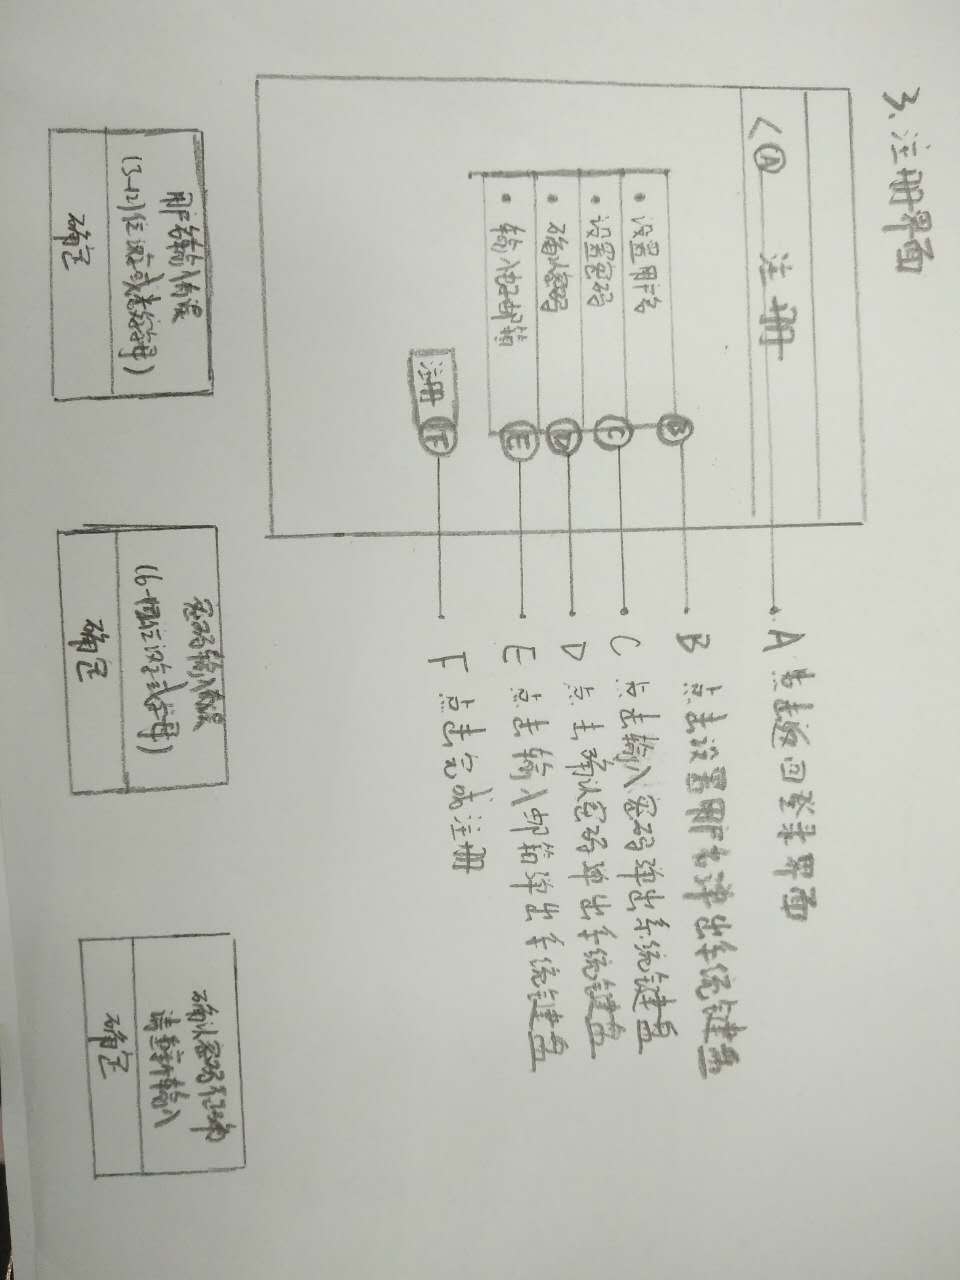 3、注册界面
< A 注册
· 设置用户名 B
· 设置密码 C
· 确认密码 D
· 输入电子邮箱 E
注册 F
A 点击返回登录界面
B 点击设置用户名弹出系统键盘
C 点击输入密码弹出系统键盘
D 点击确认密码弹出系统键盘
E 点击输入邮箱弹出系统键盘
F 点击完成注册
用户名输入有误
(3-12)位汉字或者字母)
确定
密码输入有误
位汉字或字母)
确定
确认密码
请重新输入
确定